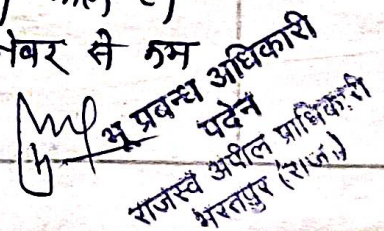 नंबर से कम
भू प्रबन्ध अधिकारी
पदेन
राजस्व अपील प्राधिकारी
भरतपुर (राज.)